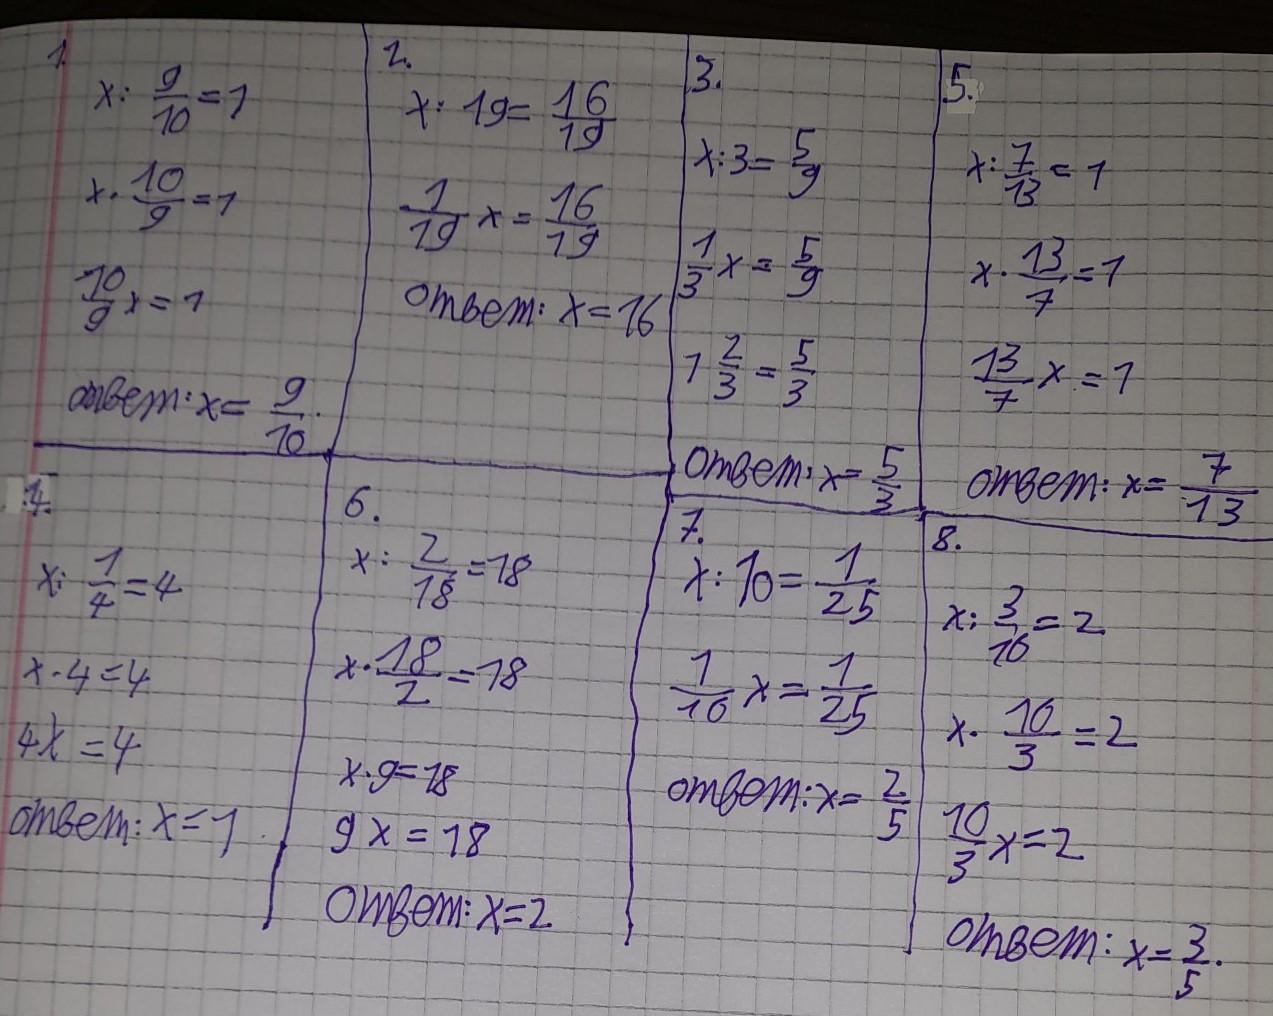 1.
x : 9/10 = 1
x · 10/9 = 1
10/9 x = 1
ответ: x = 9/10.
2.
x : 19 = 16/19
1/19 x = 16/19
ответ: x = 16
3.
x : 3 = 5/9
1/3 x = 5/9
1 2/3 = 5/3
ответ: x = 5/3
5.
x : 7/13 = 1
x · 13/7 = 1
13/7 x = 1
ответ: x = 7/13
4.
x : 1/4 = 4
x · 4 = 4
4x = 4
ответ: x = 1
6.
x : 2/18 = 18
x · 18/2 = 18
x · 9 = 18
9x = 18
Ответ: x = 2
7.
x : 10 = 1/25
1/10 x = 1/25
ответ: x = 2/5
8.
x : 3/10 = 2
x · 10/3 = 2
10/3 x = 2
ответ: x = 3/5.